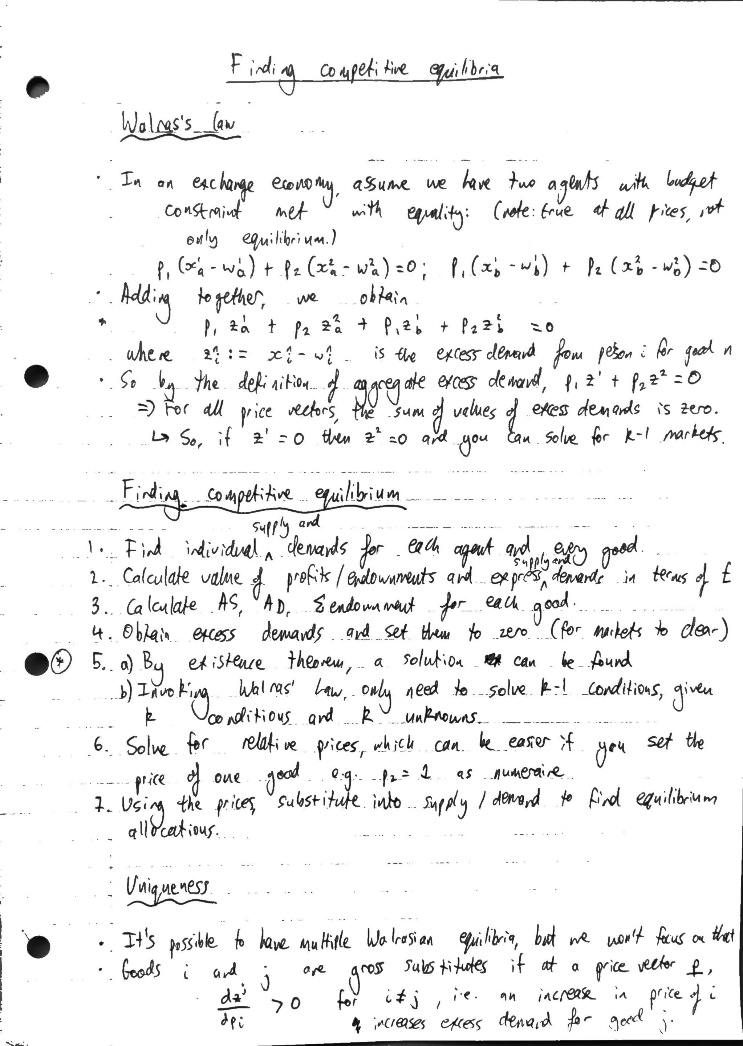 Finding competitive equilibria
Walras's Law
· In an exchange economy, assume we have two agents with budget
constraint met with equality: (note: true at all prices, not
only equilibrium.)
p₁(x¹ₐ - w¹ₐ) + p₂(x²ₐ - w²ₐ) = 0 ; p₁(x¹_b - w¹_b) + p₂(x²_b - w²_b) = 0
· Adding together, we obtain
* p₁ z¹ₐ + p₂ z²ₐ + p₁ z¹_b + p₂ z²_b = 0
where zᵢⁿ := xᵢⁿ - wᵢⁿ is the excess demand from person i for good n
· So by the definition of aggregate excess demand, p₁ z¹ + p₂ z² = 0
=) For all price vectors, the sum of values of excess demands is zero.
↳ So, if z¹ = 0 then z² = 0 and you can solve for k-1 markets.
Finding competitive equilibrium
1. Find individual ^ supply and demands for each agent and every good.
2. Calculate value of profits / endownments and express ^ supply and demands in terms of p
3. Calculate AS, AD, & endownment for each good.
4. Obtain excess demands and set them to zero (for markets to clear)
(*) 5. a) By existence theorem, a solution can be found
b) Invoking Walras' Law, only need to solve k-1 conditions, given
k conditions and k unknowns.
6. Solve for relative prices, which can be easer if you set the
price of one good e.g. p₂ = 1 as numeraire
7. Using the prices, substitute into supply / demand to find equilibrium
allocations.
Uniqueness
· It's possible to have multiple Walrasian equilibria, but we won't focus on that
· Goods i and j are gross substitutes if at a price vector p,
dzʲ/dpᵢ > 0 for i ≠ j, i.e. an increase in price of i
increases excess demand for good j.